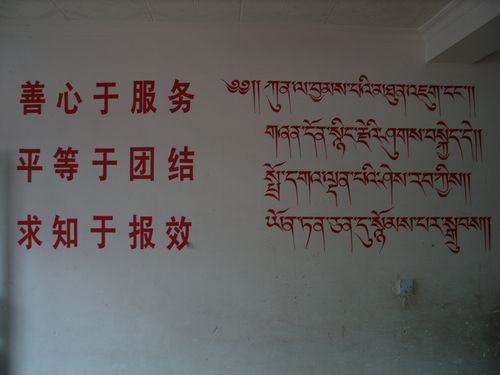 善心于服务
平等于团结
求知于报效
༄༅།། ཀུན་ལ་བྱམས་པའི་མཐུན་འཇུག་དང་།
གཞན་དོན་སྙིང་རྗེའི་ཤུགས་བསྐྱེད་དེ།།
སྤྲོ་དགའ་ལྡན་པའི་ཤེས་རབ་ཀྱིས།།
ཡོན་ཏན་ཅན་དུ་སློམས་པར་སྒྲུབས།།